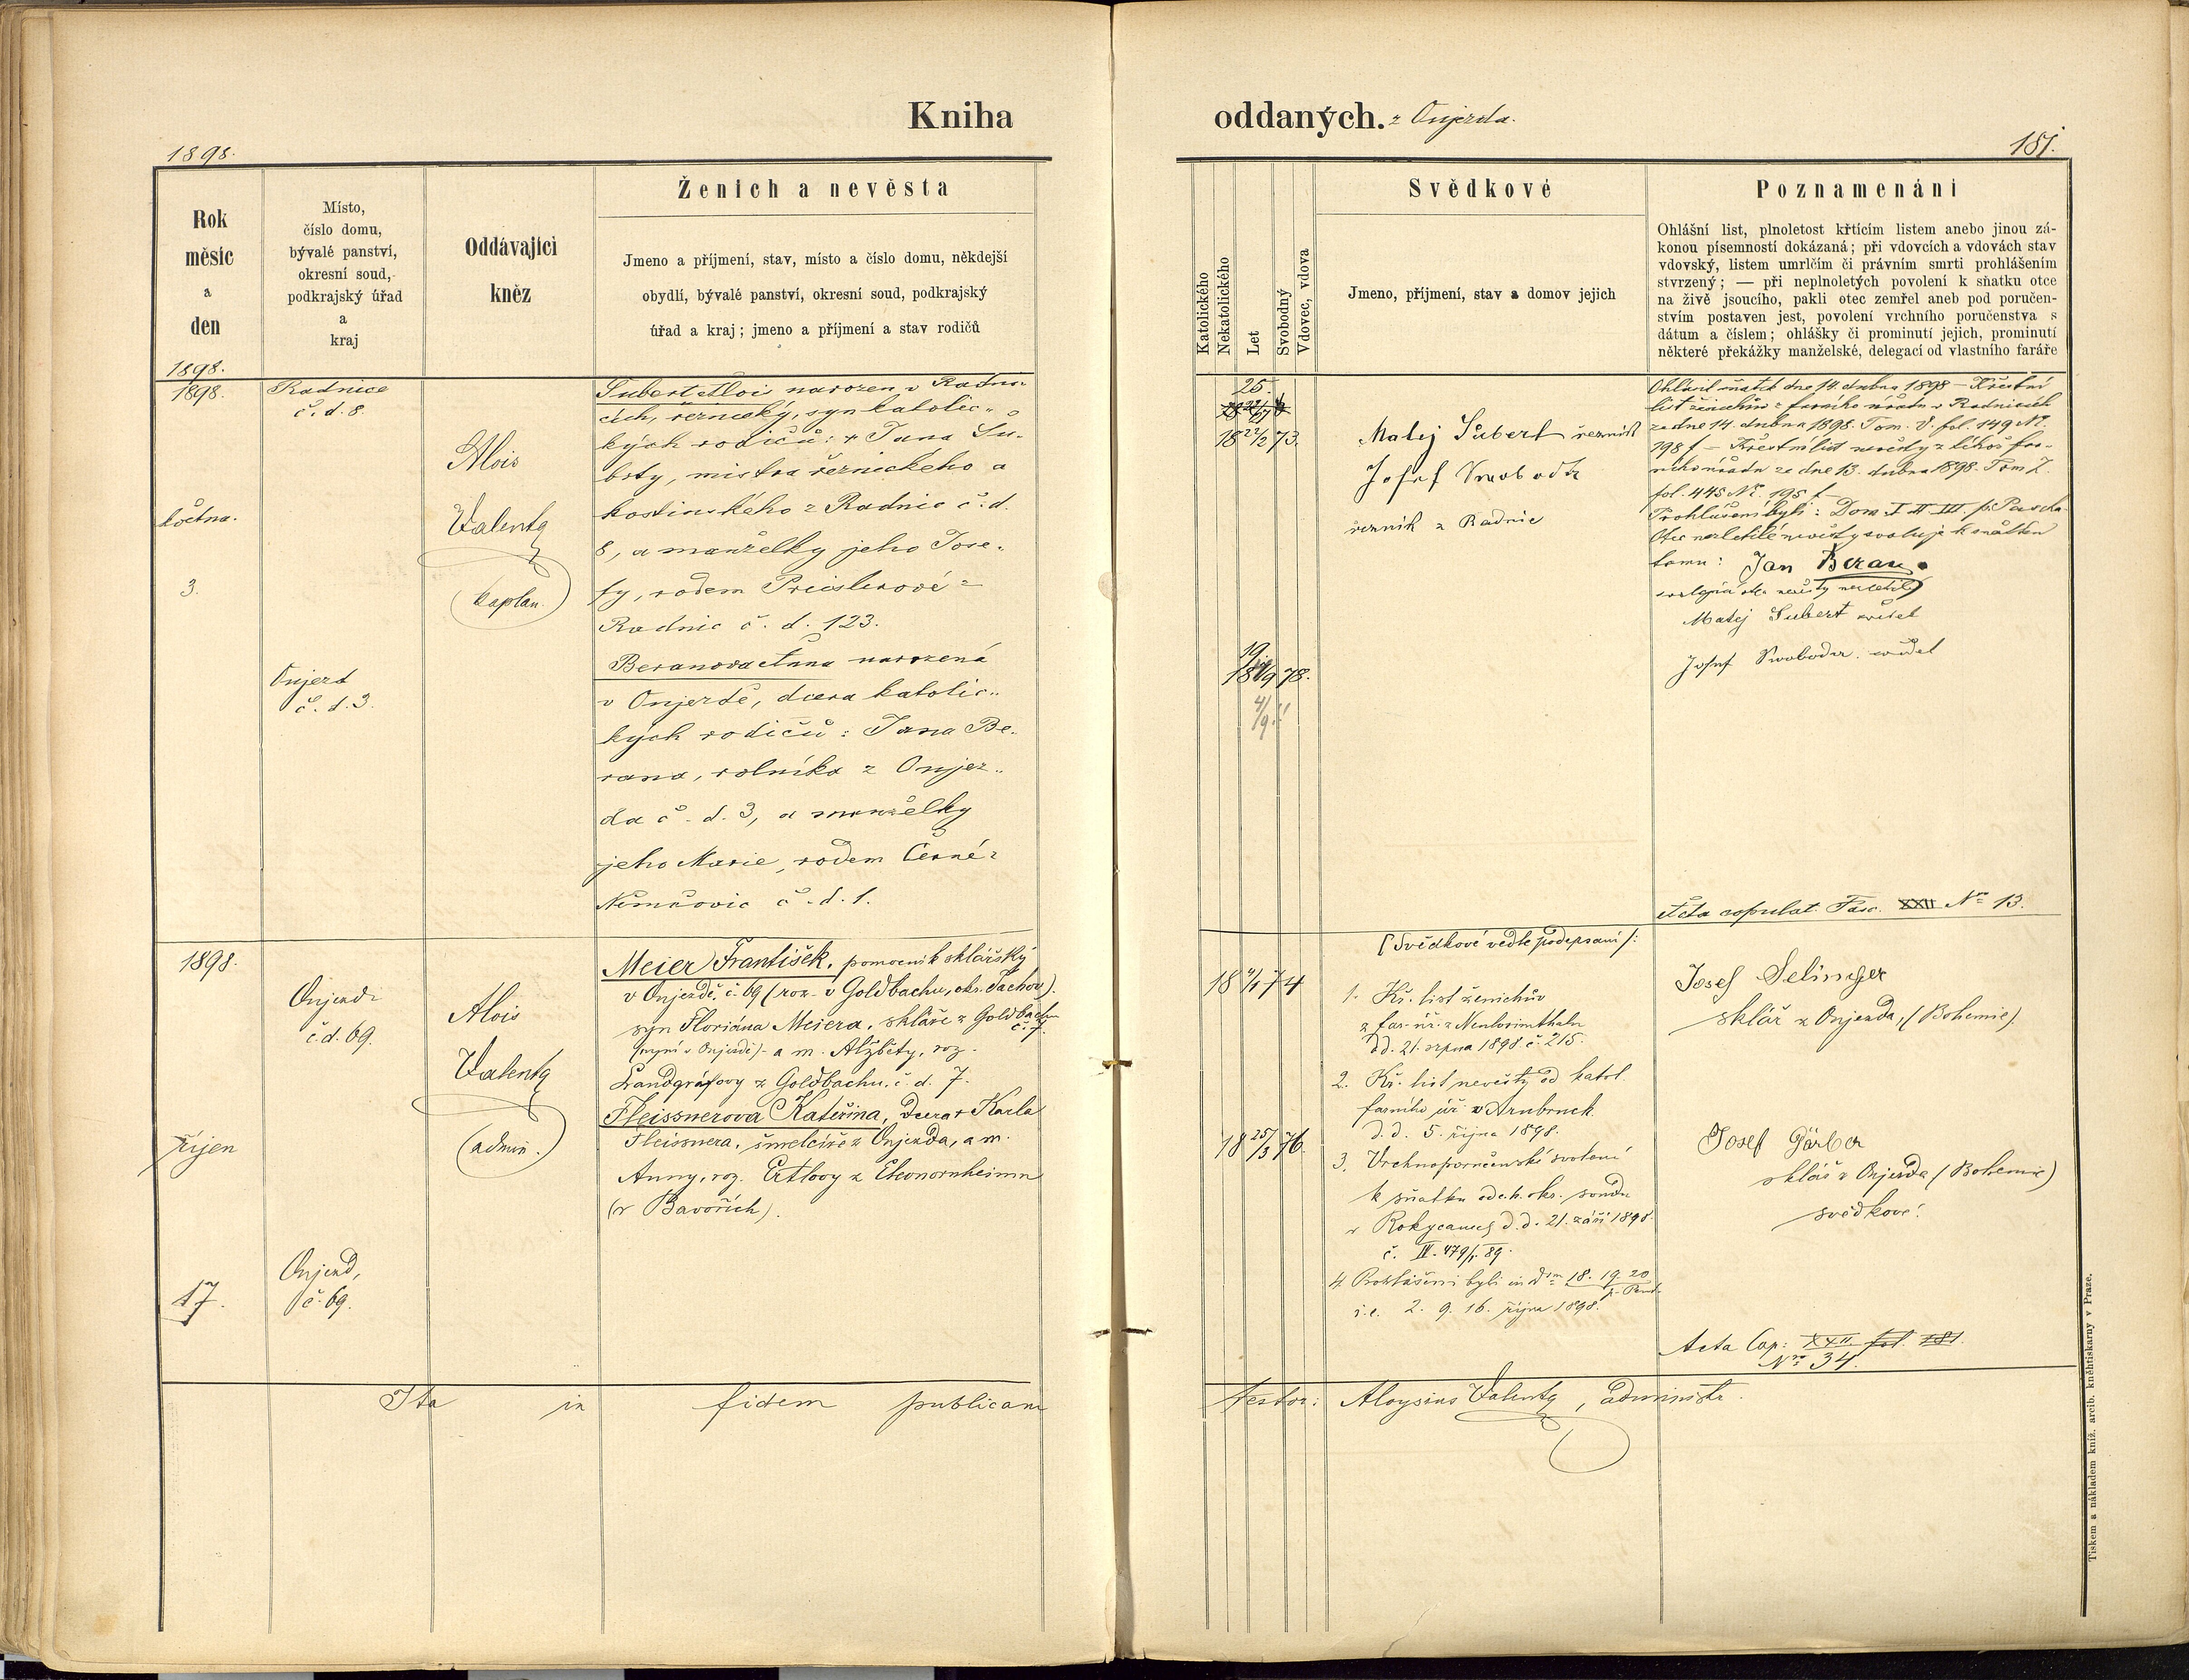 Kniha
1898.
Rok
měsíc
a
den
1898.
Místo,
číslo domu,
bývalé panství,
okresní soud,
podkrajský úřad
a
kraj
Oddávající
kněz
Ženich a nevěsta
Jmeno a příjmení, stav, místo a číslo domu, někdejší
obydlí, bývalé panství, okresní soud, podkrajský
úřad a kraj; jmeno a příjmení a stav rodičů
1898.
května.
3.
Radnice
č. d. 8.
Onjezd
č. d. 3.
Alois
Valenta
(kaplan.)
Šubert Alois narozen v Radni-
cích, řeznický, syn katolic-
kých rodičů: † Jana Šu-
brty, mistra řeznického a
hostinského z Radnic č. d.
8, a manželky jeho Jose-
fy, rodem Preislerové z
Radnic č. d. 123.
Beranova Anna narozená
v Onjezdě, dcera katolic-
kých rodičů: Jana Be-
rana, rolníka z Onjez-
da č. d. 3, a manželky
jeho Marie, rodem Černé z
Němčovic č. d. 1.
1898.
říjen
17.
Onjezd
č. d. 69.
Onjezd,
č. 69.
Alois
Valenta
(admin.)
Meier František, pomocník sklářský
v Onjezdě, č. 69 (roz. v Goldbachu, okr. Tachov).
syn Floriána Meiera, skláře z Goldbachu
č. 7.
(nyní v Onjezdě) a m. Alžběty, roz.
Landgráfovy z Goldbachu, č. d. 7.
Fleissnerova Kateřina, dcera † Karla
Fleissnera, šmelcíře z Onjezda, a m.
Anny, roz. Ertlovy z Eleonornheimu
(v Bavořích).
Ita in fidem publicam
oddaných. z Onjezda.
181.
Katolického
Nekatolického
Let
Svobodný
Vdovec, vdova
Svědkové
Jmeno, příjmení, stav a domov jejich
Poznamenání
Ohlášní list, plnoletost křtícím listem anebo jinou zá-
konou písemností dokázaná; při vdovcích a vdovách stav
vdovský, listem umrlčím či právním smrti prohlášením
stvrzený; — při neplnoletých povolení k sňatku otce
na živě jsoucího, pakli otec zemřel aneb pod poručen-
stvím postaven jest, povolení vrchního poručenstva s
dátum a číslem; ohlášky či prominutí jejich, prominutí
některé překážky manželské, delegací od vlastního faráře
25.
18 22/2 73.
19
78.
4/9
Matěj Šubert řezník
Josef Swoboda
řezník z Radnic
Ohlásil sňatek dne 14. dubna 1898 — Křestní
list ženichův z farního úřadu v Radnicích
ze dne 14. dubna 1898. Tom. V. fol. 149 Nr.
198 f — Křestní list nevěsty z téhož far-
ního úřadu ze dne 13. dubna 1898. Tom Z.
fol. 445 Nr. 195 f. —
Prohlášeni byli: Dom. I II III p. Pascha
Otec nezletilé nevěsty svoluje k sňatku
tomu: Jan Beran
Matěj Šubert svědek
Josef Swoboda. svědek
Acta copulat. Fasc. XXII Nr. 13.
18 4/1 74
18 25/3 76.
(Svědkové vedle podepsaní):
1. Kř. list ženichův
z far. úř. z Neulosimthalu
dd. 21. srpna 1898. č. 215.
2. Kř. list nevěsty od katol.
farního úř. v Arnbruck
d. d. 5. října 1898.
3. Vrchnoporučenské svolení
k sňatku od c. k. okr. soudu
v Rokycanech d. d. 21. září 1898.
č. IV. 479/1 89.
4. Prohlášeni byli in Dom 18. 19. 20
p. Pent.
i. e. 2. 9. 16. října 1898.
Josef Selinger
sklář z Onjezda, (Bohemie).
Josef Gärber
sklář z Onjezda (Bohemie)
svědkové.
Acta Cop: XXII. fol. 181.
Nro 34.
testor: Aloysius Valenta, administr.
Tiskem a nákladem kníž. arcib. kněhtiskarny v Praze.